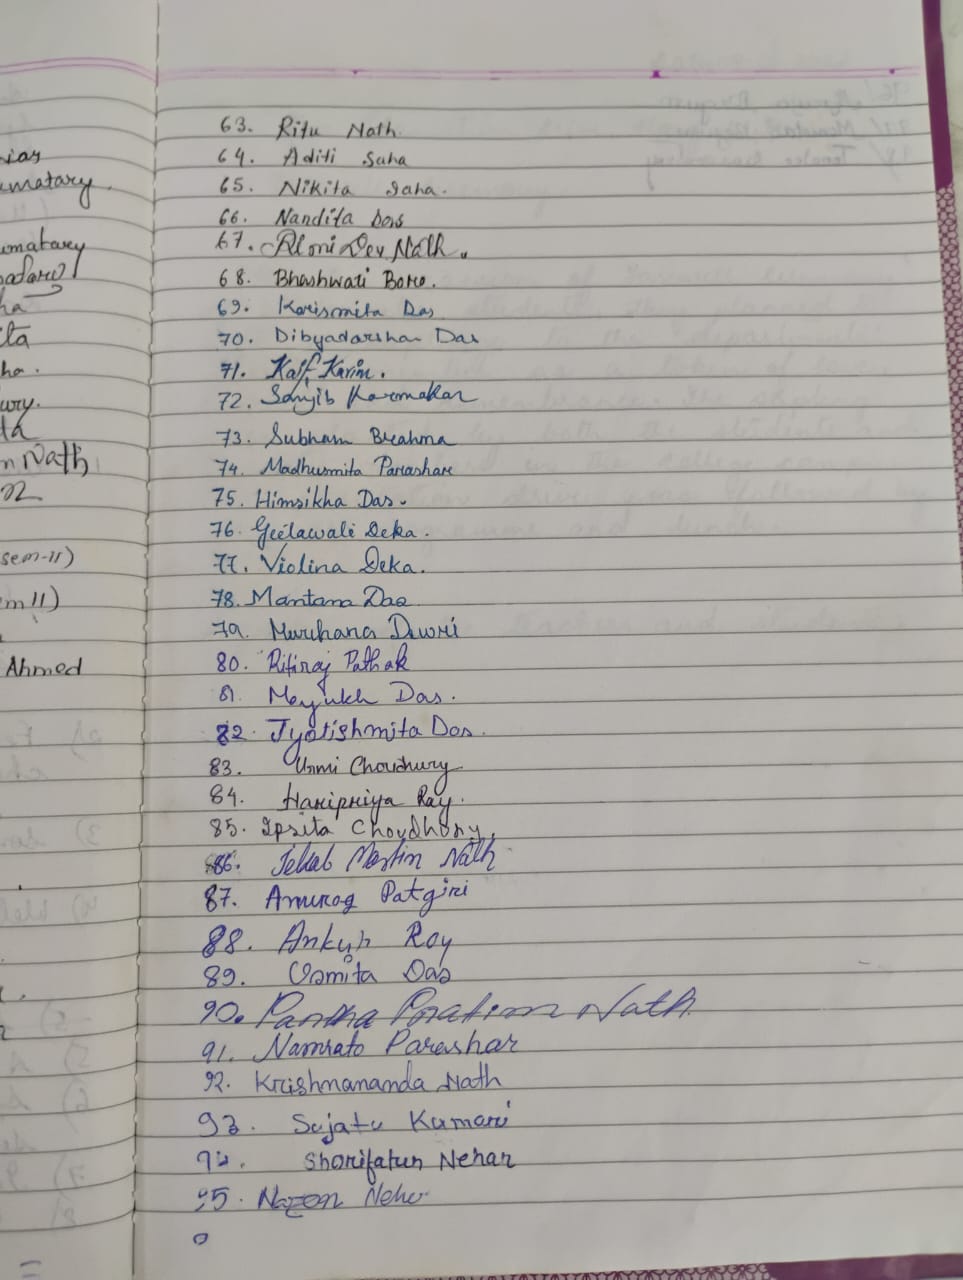 ias
matary.
omatary
adaro
ha
ita
ha.
ury.
ta
n Nath
sem-II)
m II)
Ahmed
63. Ritu Nath
64. Aditi Saha
65. Nikita Saha.
66. Nandita Das
67. Dev Nath.
68. Bhashwati Boro.
69. Karismita Das
70. Dibyadarshan Das
71. Kaif Karim.
72. Sanjib Karmakar
73. Subham Brahma
74. Madhusmita Parashar
75. Himsikha Das.
76. Geetawali Deka.
77. Violina Deka.
78. Mantana Das
79. Dewri
80. Ritiraj Pathak
81. Mayukh Das.
82. Jyotishmita Das.
83. Urmi Choudhury
84. Haripriya Ray.
85. Ipsita Choudhory.
86. Nath
87. Anurag Patgiri
88. Ankush Roy
89. Das
90. Partha Pratim Nath.
91. Namrata Parashar
92. Krishnananda Nath
93. Sujata Kumari
94. Sharifatun Nehar
95.